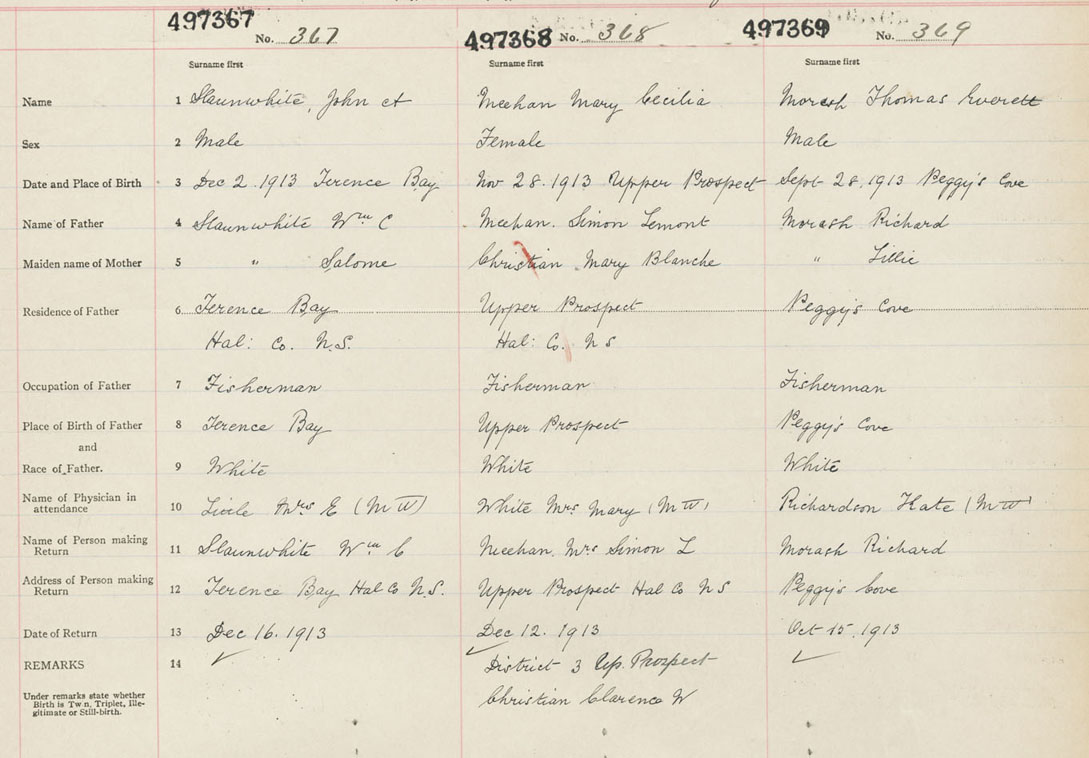 497367 No. 367 497368 No. 368 497369 No. 369
Surname first Surname first Surname first
Name 1 Slaunwhite, John A Meehan Mary Cecilia Morash Thomas Everett
Sex 2 Male Female Male
Date and Place of Birth 3 Dec 2. 1913 Terence Bay Nov 28. 1913 Upper Prospect Sept 28, 1913 Peggy's Cove
Name of Father 4 Slaunwhite Wm C Meehan. Simon Lemont Morash Richard
Maiden name of Mother 5 " Salome Christian Mary Blanche " Lillie
Residence of Father 6 Terence Bay Upper Prospect Peggy's Cove
Hal: Co. N.S. Hal: Co. N S
Occupation of Father 7 Fisherman Fisherman Fisherman
Place of Birth of Father 8 Terence Bay Upper Prospect Peggy's Cove
and
Race of Father. 9 White White White
Name of Physician in
attendance 10 Mrs E (M W) White Mrs Mary (M W) Richardson Kate (M W)
Name of Person making
Return 11 Slaunwhite Wm C Meehan. Mrs Simon L Morash Richard
Address of Person making
Return 12 Terence Bay Hal Co N.S. Upper Prospect Hal Co N S Peggy's Cove
Date of Return 13 Dec 16. 1913 Dec 12. 1913 Oct 15, 1913
REMARKS 14 ✓ District 3 Up. Prospect ✓
Under remarks state whether
Birth is Twin, Triplet, Ille-
gitimate or Still-birth. Christian Clarence W